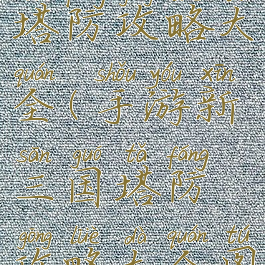 塔防攻略大
quán shǒu yóu xīn
全(手游新
sān guó tǎ fáng
三国塔防
gōng lüè dà quán tú
攻略大全图